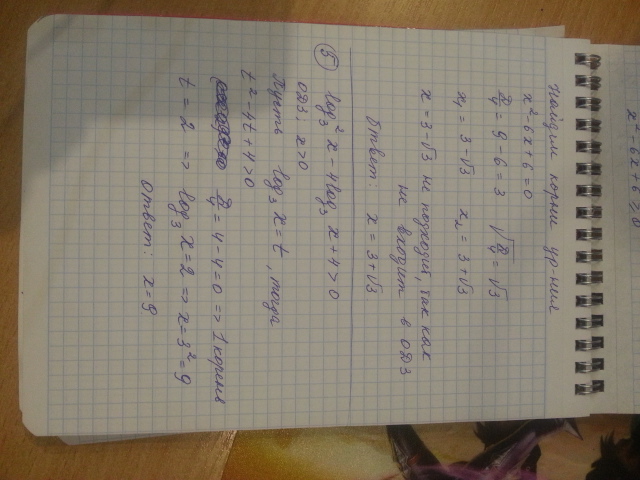 Найдим корни ур-ния
x²-6x+6=0
D/4 = 9-6=3 √D/4 = √3
x₁ = 3-√3 x₂ = 3+√3
x = 3-√3 не подходит, так как
не входит в ОДЗ
Ответ: x = 3+√3
5 log₃² x - 4log₃ x + 4 > 0
ОДЗ: x>0
Пусть log₃ x = t, тогда
t² - 4t + 4 > 0
D/4 = 4-4=0 => 1 корень
t = 2 => log₃ x = 2 => x = 3² = 9
Ответ: x = 9
x²-6x+6≥0